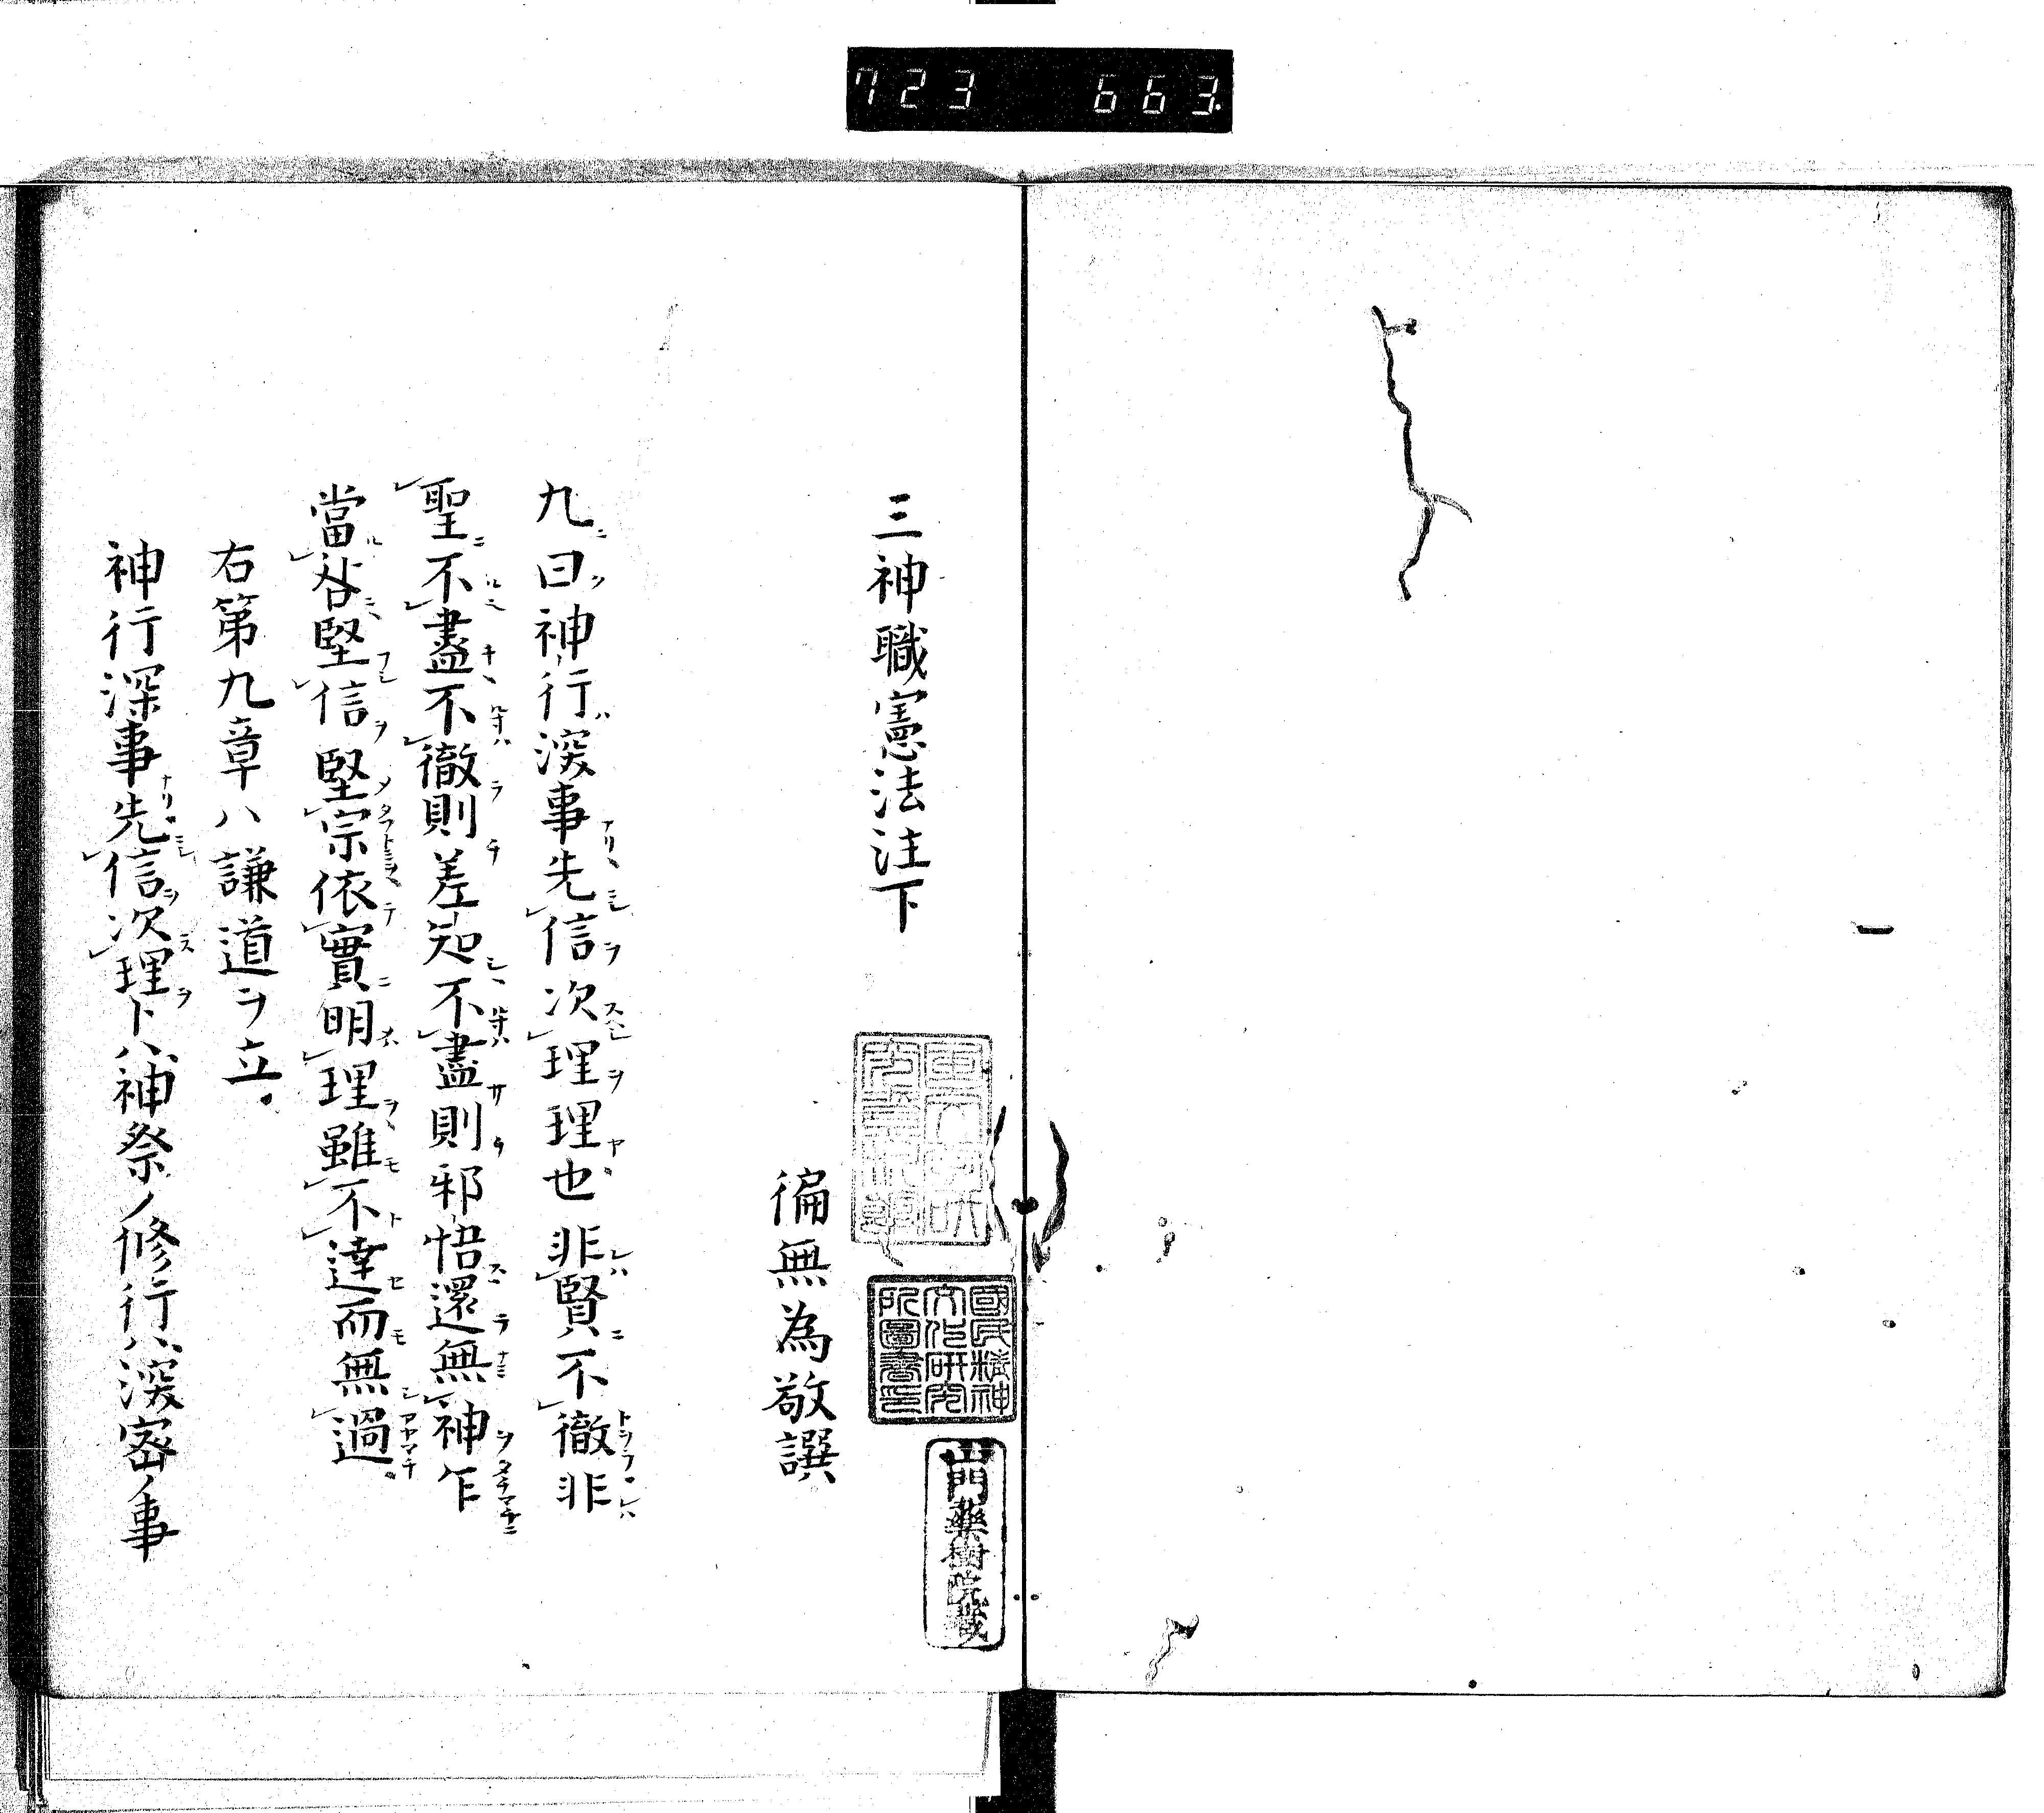 723 663.
三神職憲法注下
徧無為敬譔
九曰神行深事先信次理理也非賢不徹非
聖不盡不徹則差知不盡則邪悟還無神乍
當咎堅信堅宗依實明理雖不達而無過
右第九章ハ謙道ヲ立
神行深事先信次理トハ神祭ノ修行ハ深密ノ事
國民精神
文化研究
所圖書印
山門藥樹院藏